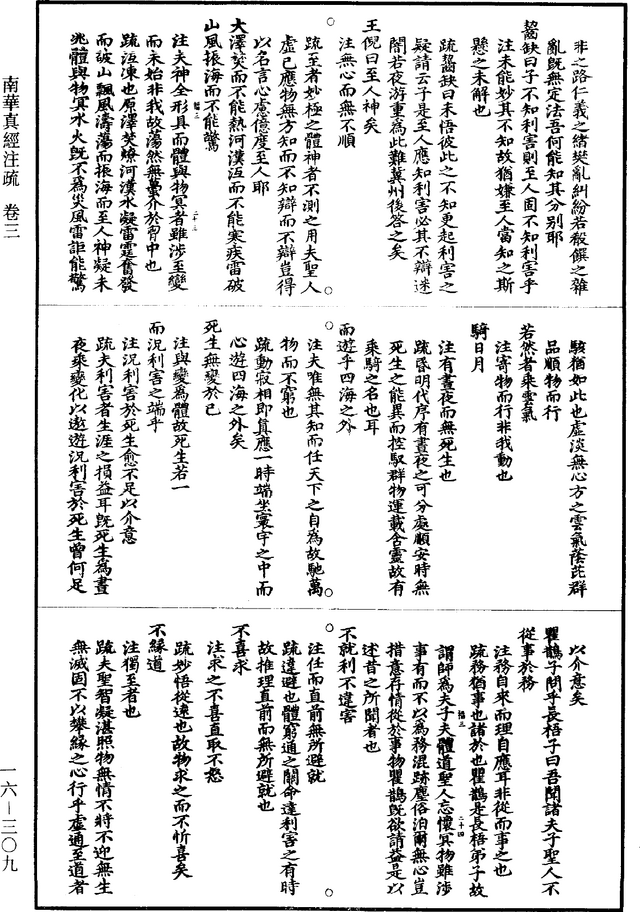 非之路仁義之緒樊亂糾紛若殽饌之雜
亂既無定法吾何能知其分別耶
齧缺曰子不知利害則至人固不知利害乎
注未能妙其不知故猶嫌至人當知之斯
懸之未解也
疏齧缺曰未悟彼此之不知更起利害之
疑請云子是至人應知利害必其不辯迷
闇若夜游重為此難冀州後答之矣
王倪曰至人神矣
注無心而無不順
疏至者妙極之體神者不測之用夫聖人
虛己應物無方知而不知辯而不辯豈得
以名言心慮億度至人耶
大澤焚而不能熱河漢沍而不能寒疾雷破
山風振海而不能驚
注夫神全形具而體與物冥者雖涉至變
而未始非我故蕩然無蠆介於胷中也
疏沍凍也原澤焚燎河漢水凝雷霆奮發
而破山飄風濤蕩而振海而至人神凝未
兆體與物冥水火既不為災風雷詎能驚
駭猶如此也虛淡無心方之雲氣蔭芘群
品順物而行
若然者乘雲氣
注寄物而行非我動也
騎日月
注有晝夜而無死生也
疏昏明代序有晝夜之可分處順安時無
死生之能異而控馭群物運載含靈故有
乘騎之名也耳
而遊乎四海之外
注夫唯無其知而任天下之自為故馳萬
物而不窮也
疏動寂相即真應一時端坐寰宇之中而
心遊四海之外矣
死生無變於己
注與變為體故死生若一
而況利害之端乎
注況利害於死生愈不足以介意
疏夫利害者生涯之損益耳既死生為晝
夜乘變化以遨遊況利害於死生曾何足
以介意矣
瞿鵲子問乎長梧子曰吾聞諸夫子聖人不
從事於務
注務自來而理自應耳非從而事之也
疏務猶事也諸於也瞿鵲是長梧弟子故
謂師為夫子夫體道聖人忘懷冥物雖涉
事有而不以為務混跡塵俗泊爾無心豈
措意存情從於事物瞿鵲既欲請益是以
述昔之所聞者也
不就利不違害
注任而直前無所避就
疏違避也體窮通之關命達利害之有時
故推理直前而無所避就也
不喜求
注求之不喜直取不怒
疏妙悟從遠也故物求之而不忻喜矣
不緣道
注獨至者也
疏夫聖智凝湛照物無情不將不迎無生
無滅固不以攀緣之心行乎虛通至道者
南華真經注疏 卷三
一六—三〇九